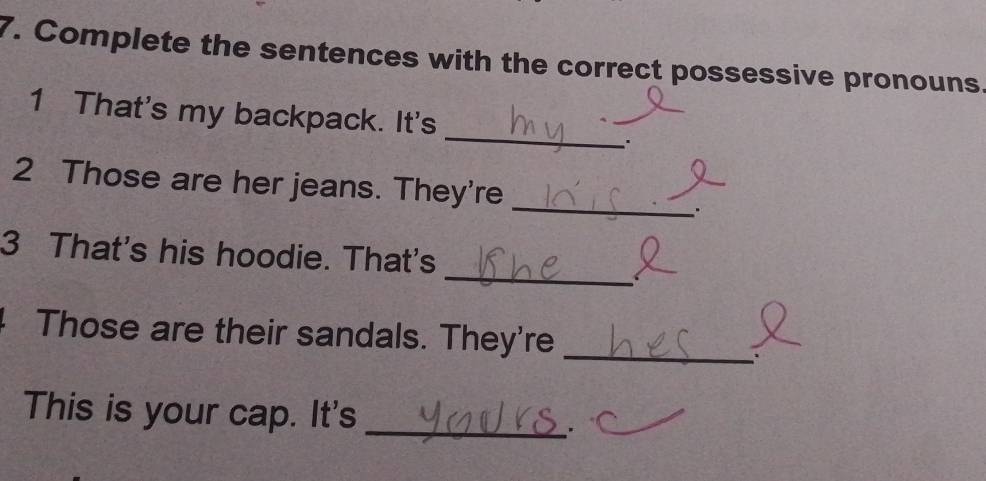 7. Complete the sentences with the correct possessive pronouns.
1 That's my backpack. It's my.
2 Those are her jeans. They're his.
3 That's his hoodie. That's she.
Those are their sandals. They're hes.
This is your cap. It's yours.